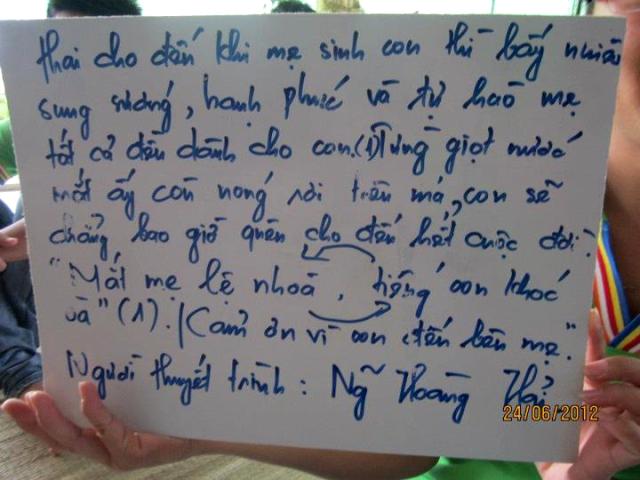 thai cho đến khi mẹ sinh con thì bấy nhiêu
sung sướng, hạnh phúc và tự hào mẹ
tất cả đều dành cho con.(1) Từng giọt nước
mắt ấy còn nóng rơi trên má, con sẽ
chẳng bao giờ quên cho đến hết cuộc đời.
"Mắt mẹ lệ nhoà, tiếng con khóc
oà" (1). Cảm ơn vì con đến bên mẹ."
Người thuyết trình: Ngữ Hoàng Hải
24/06/2012